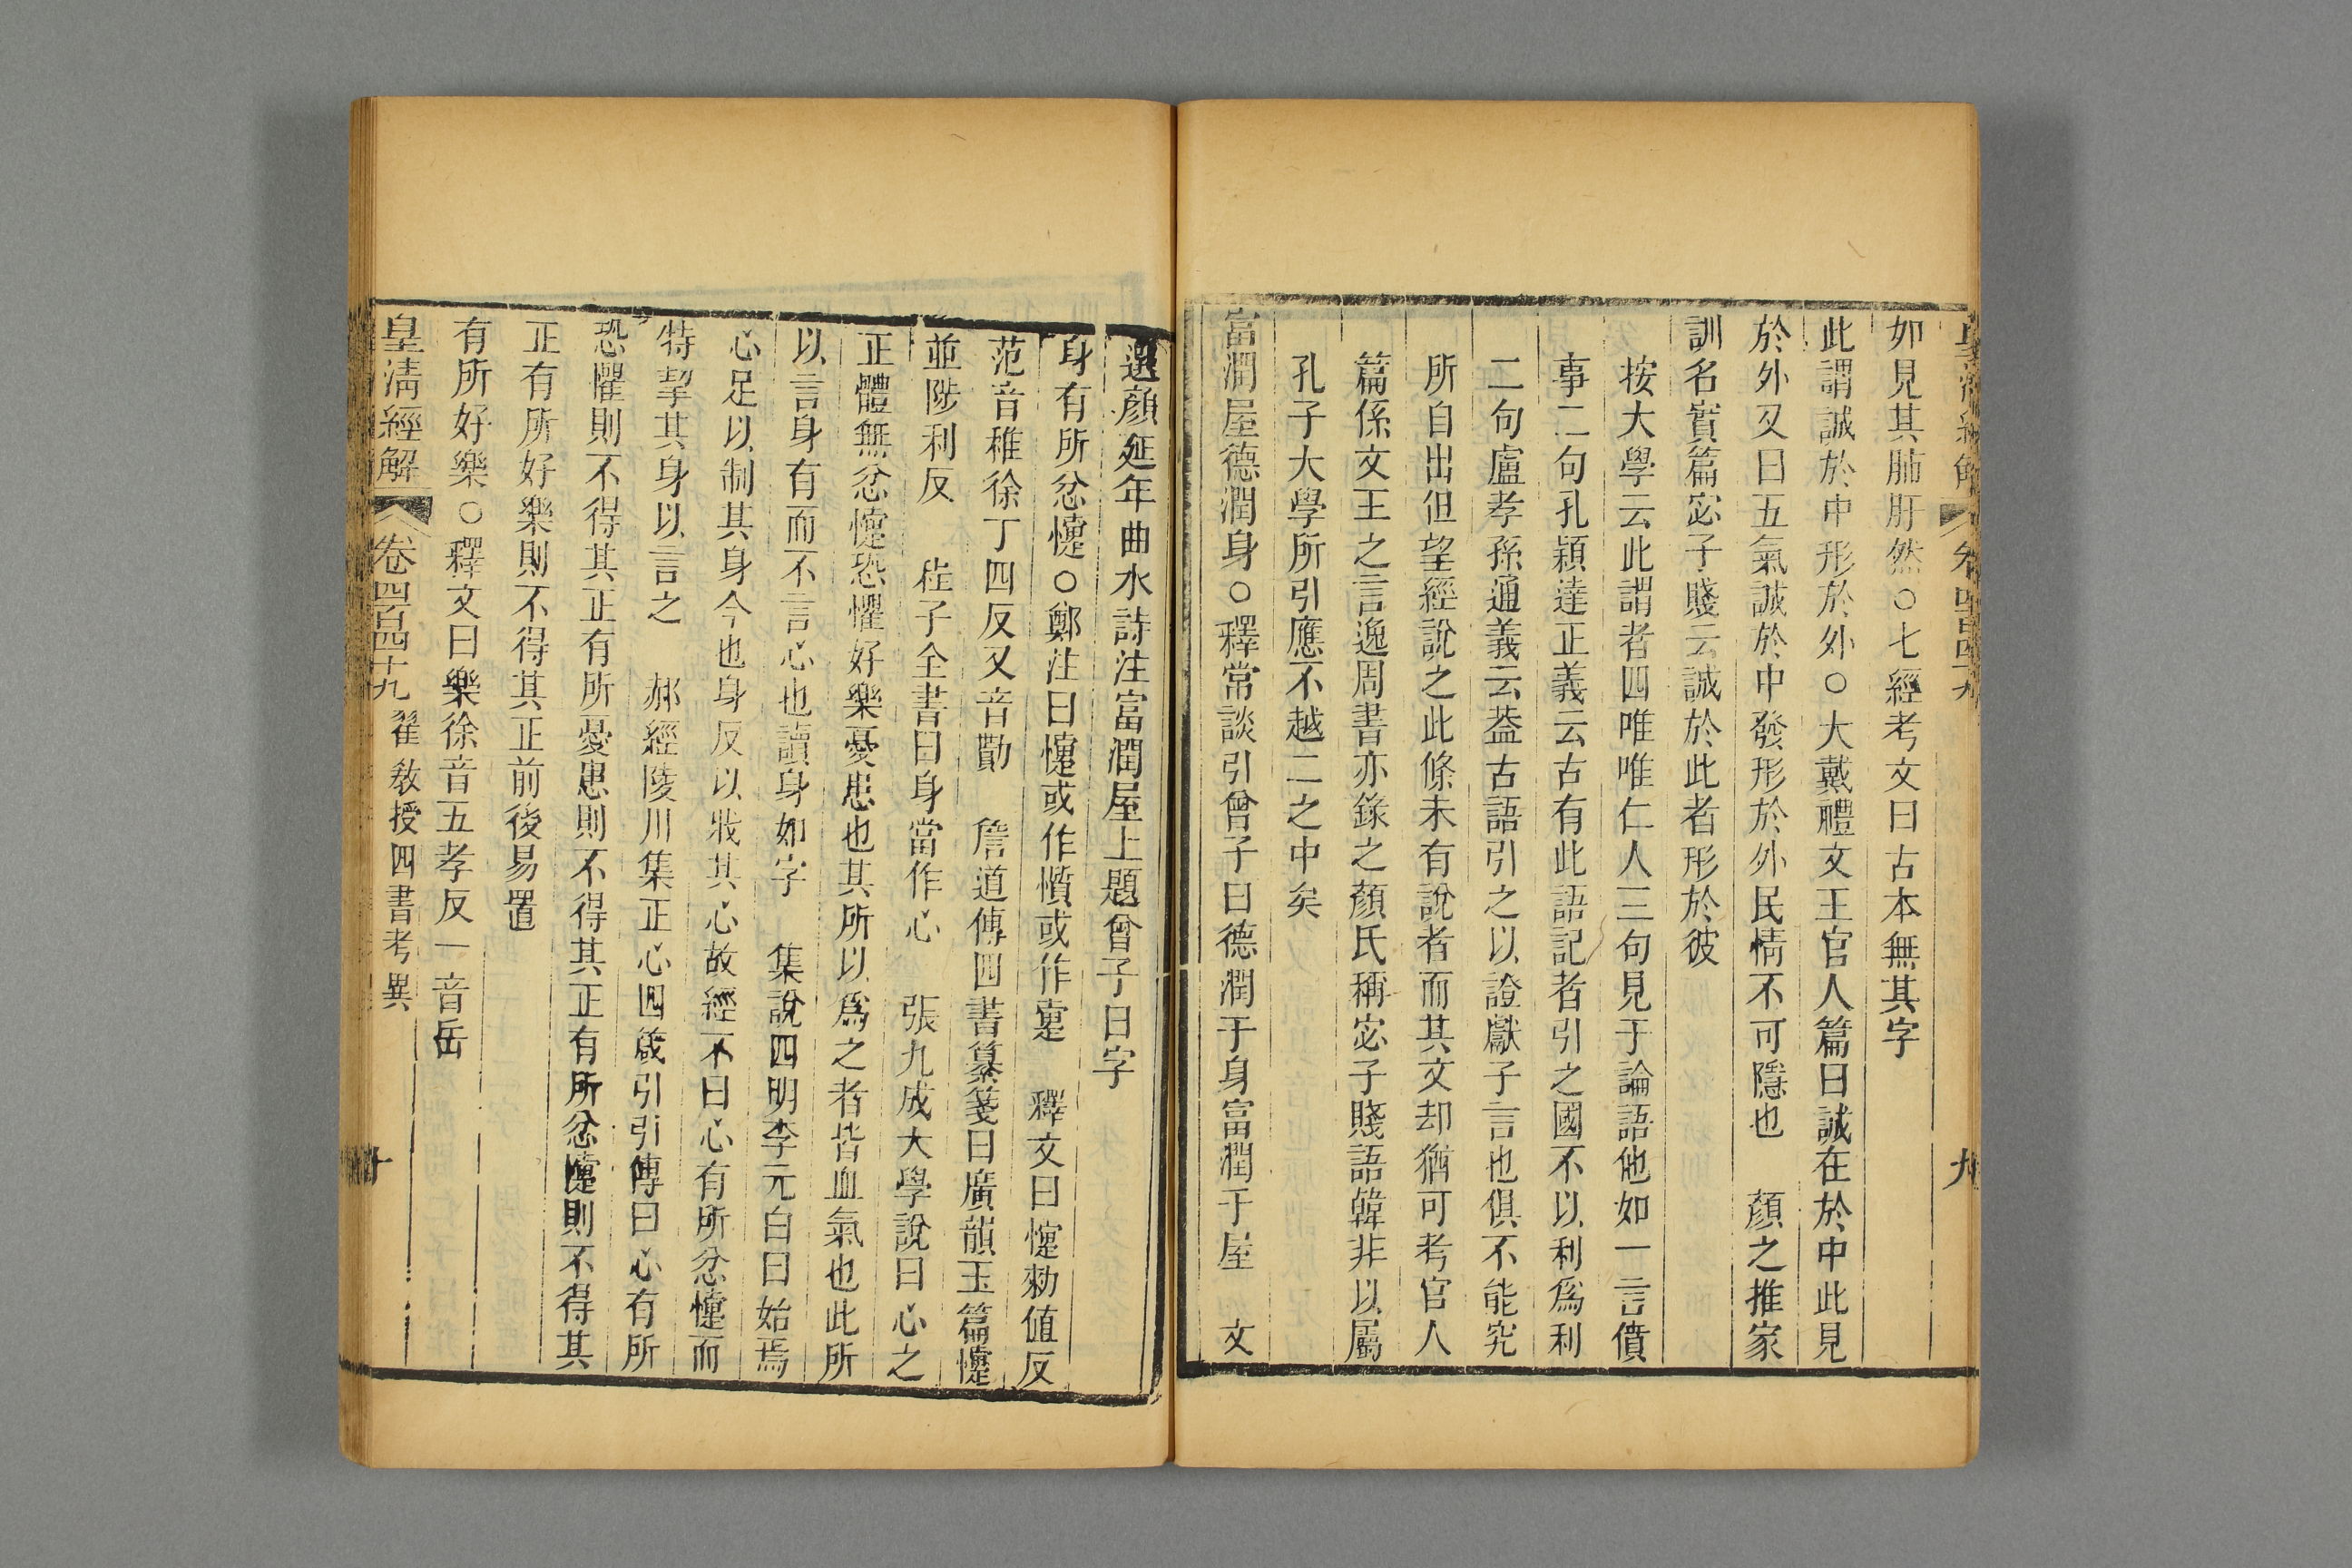 如見其肺肝然○七經考文曰古本無其字
此謂誠於中形於外○大戴禮文王官人篇曰誠在於中此見
於外又曰五氣誠於中發形於外民情不可隱也　顏之推家
訓名實篇宓子賤云誠於此者形於彼
按大學云此謂者四唯唯仁人三句見于論語他如一言僨
事二句孔穎達正義云古有此語記者引之國不以利爲利
二句盧孝孫通義云葢古語引之以證獻子言也俱不能究
所自出但望經說之此條未有說者而其文却猶可考官人
篇係文王之言逸周書亦錄之顏氏稱宓子賤語韓非以屬
孔子大學所引應不越二之中矣
富潤屋德潤身○釋常談引曾子曰德潤于身富潤于屋　文
選顏延年曲水詩注富潤屋上題曾子曰字
身有所忿懥○鄭注曰懥或作懫或作疐　釋文曰懥勑值反
范音稚徐丁四反又音勩　詹道傳四書纂箋曰廣韻玉篇懥
並陟利反　程子全書曰身當作心　張九成大學說曰心之
正體無忿懥恐懼好樂憂患也其所以爲之者皆血氣也此所
以言身有而不言心也讀身如字　集說四明李元白曰始焉
心足以制其身今也身反以戕其心故經不曰心有所忿懥而
特挈其身以言之　郝經陵川集正心四箴引引傳曰心有所
恐懼則不得其正有所憂患則不得其正有所忿懥則不得其
正有所好樂則不得其正前後易置
有所好樂○釋文曰樂徐音五孝反一音岳
皇淸經解　卷四百四十九　翟敎授四書考異　十